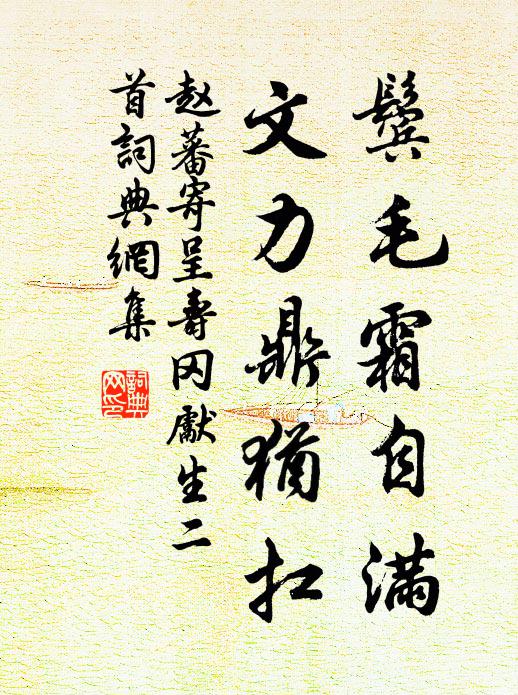 鬓毛霜自满
文力鼎犹扛
赵蕃寄呈寿冈献生二
首词典网集
詞典
网印